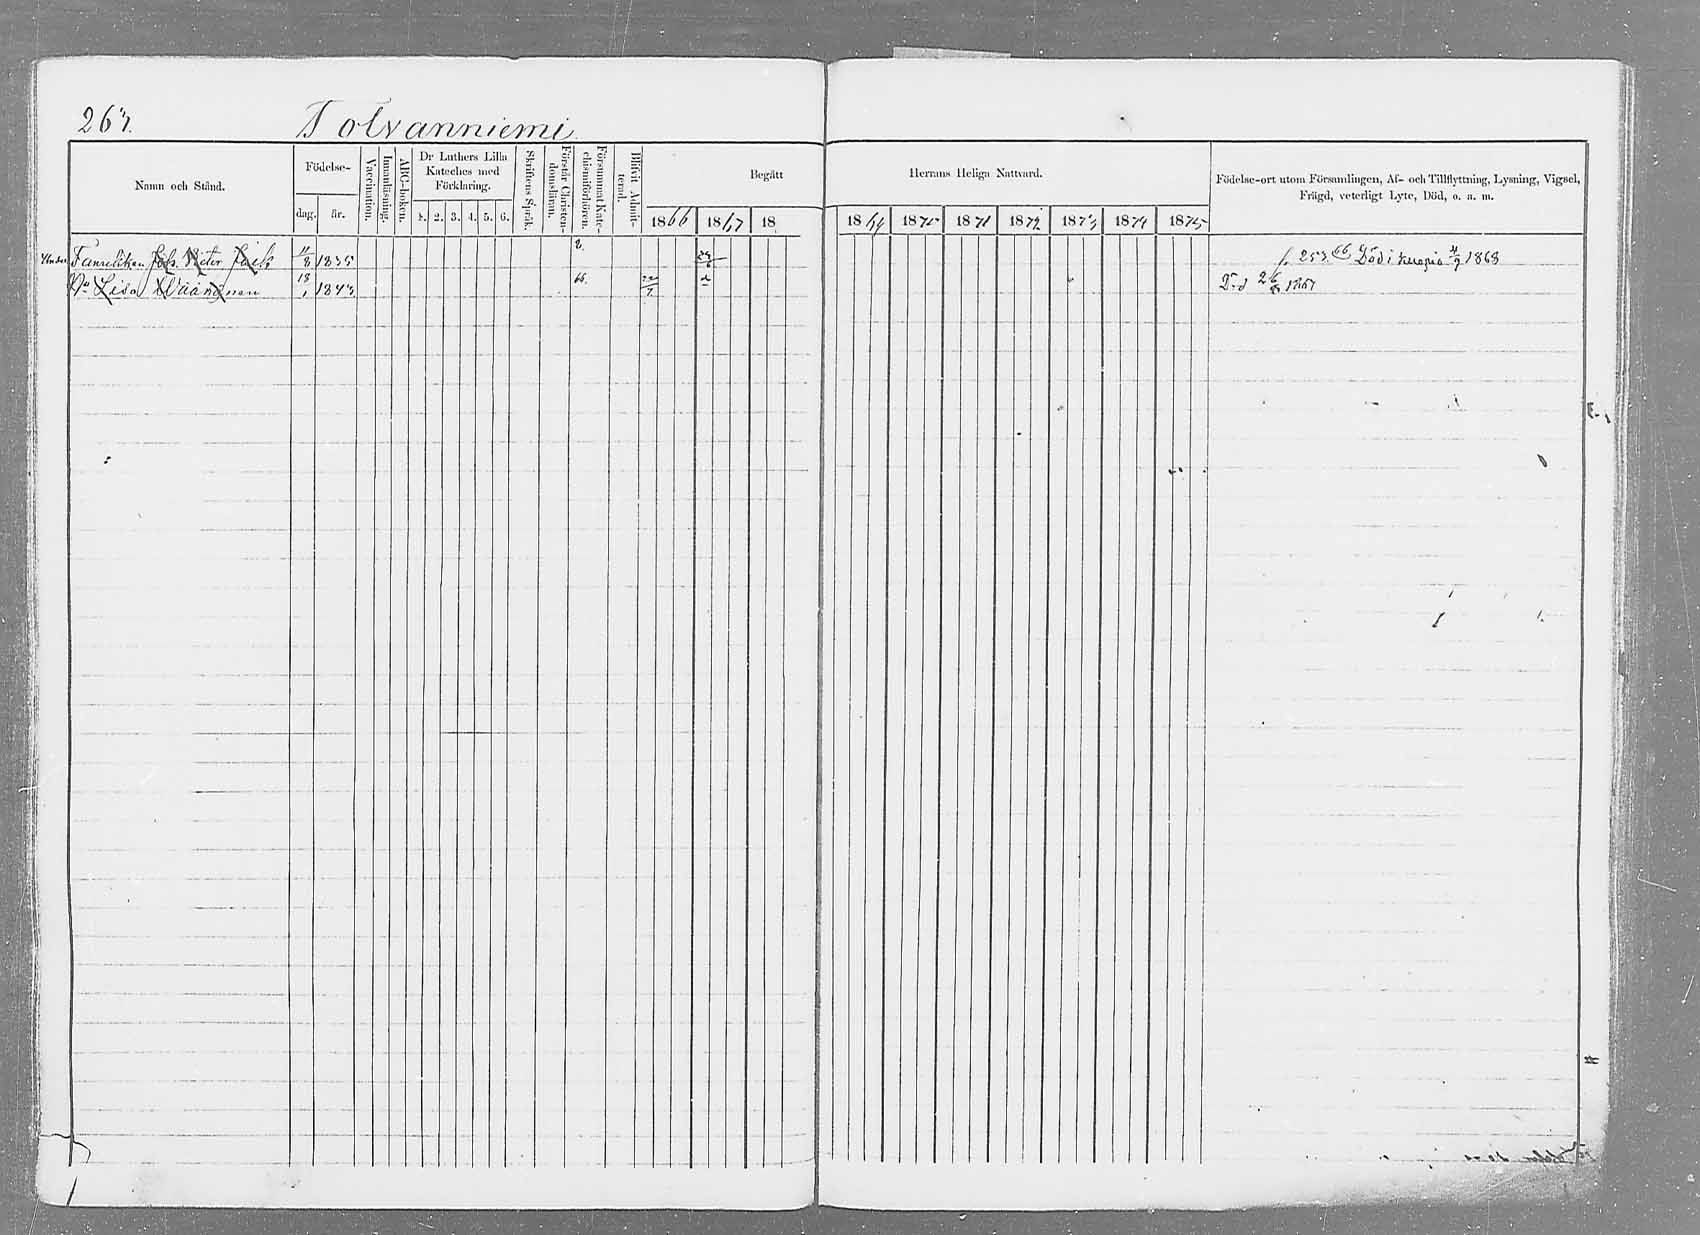 Tolvanniemi
Namn och Stånd.
Födelse-
dag. år.
Vaccination.
Innanläsning.
ABC-boken.
Dr Luthers Lilla Kateches med Förklaring.
1. 2. 3. 4. 5. 6.
Skriftens Språk.
Förstår Christendomsläran.
Försummat Katechismiförhören.
Blifvit Admitterad.
Begått Herrans Heliga Nattvard.
1866 1867 18 1869 1870 1871 1872 1873 1874 1875
Födelse-ort utom Församlingen, Af- och Tillflyttning, Lysning, Vigsel,
Frägd, veterligt Lyte, Död, o. a. m.
11/8 1835 Död i 1868
Hu Lisa Wäänänen 18/1 1843 66 Död 1867